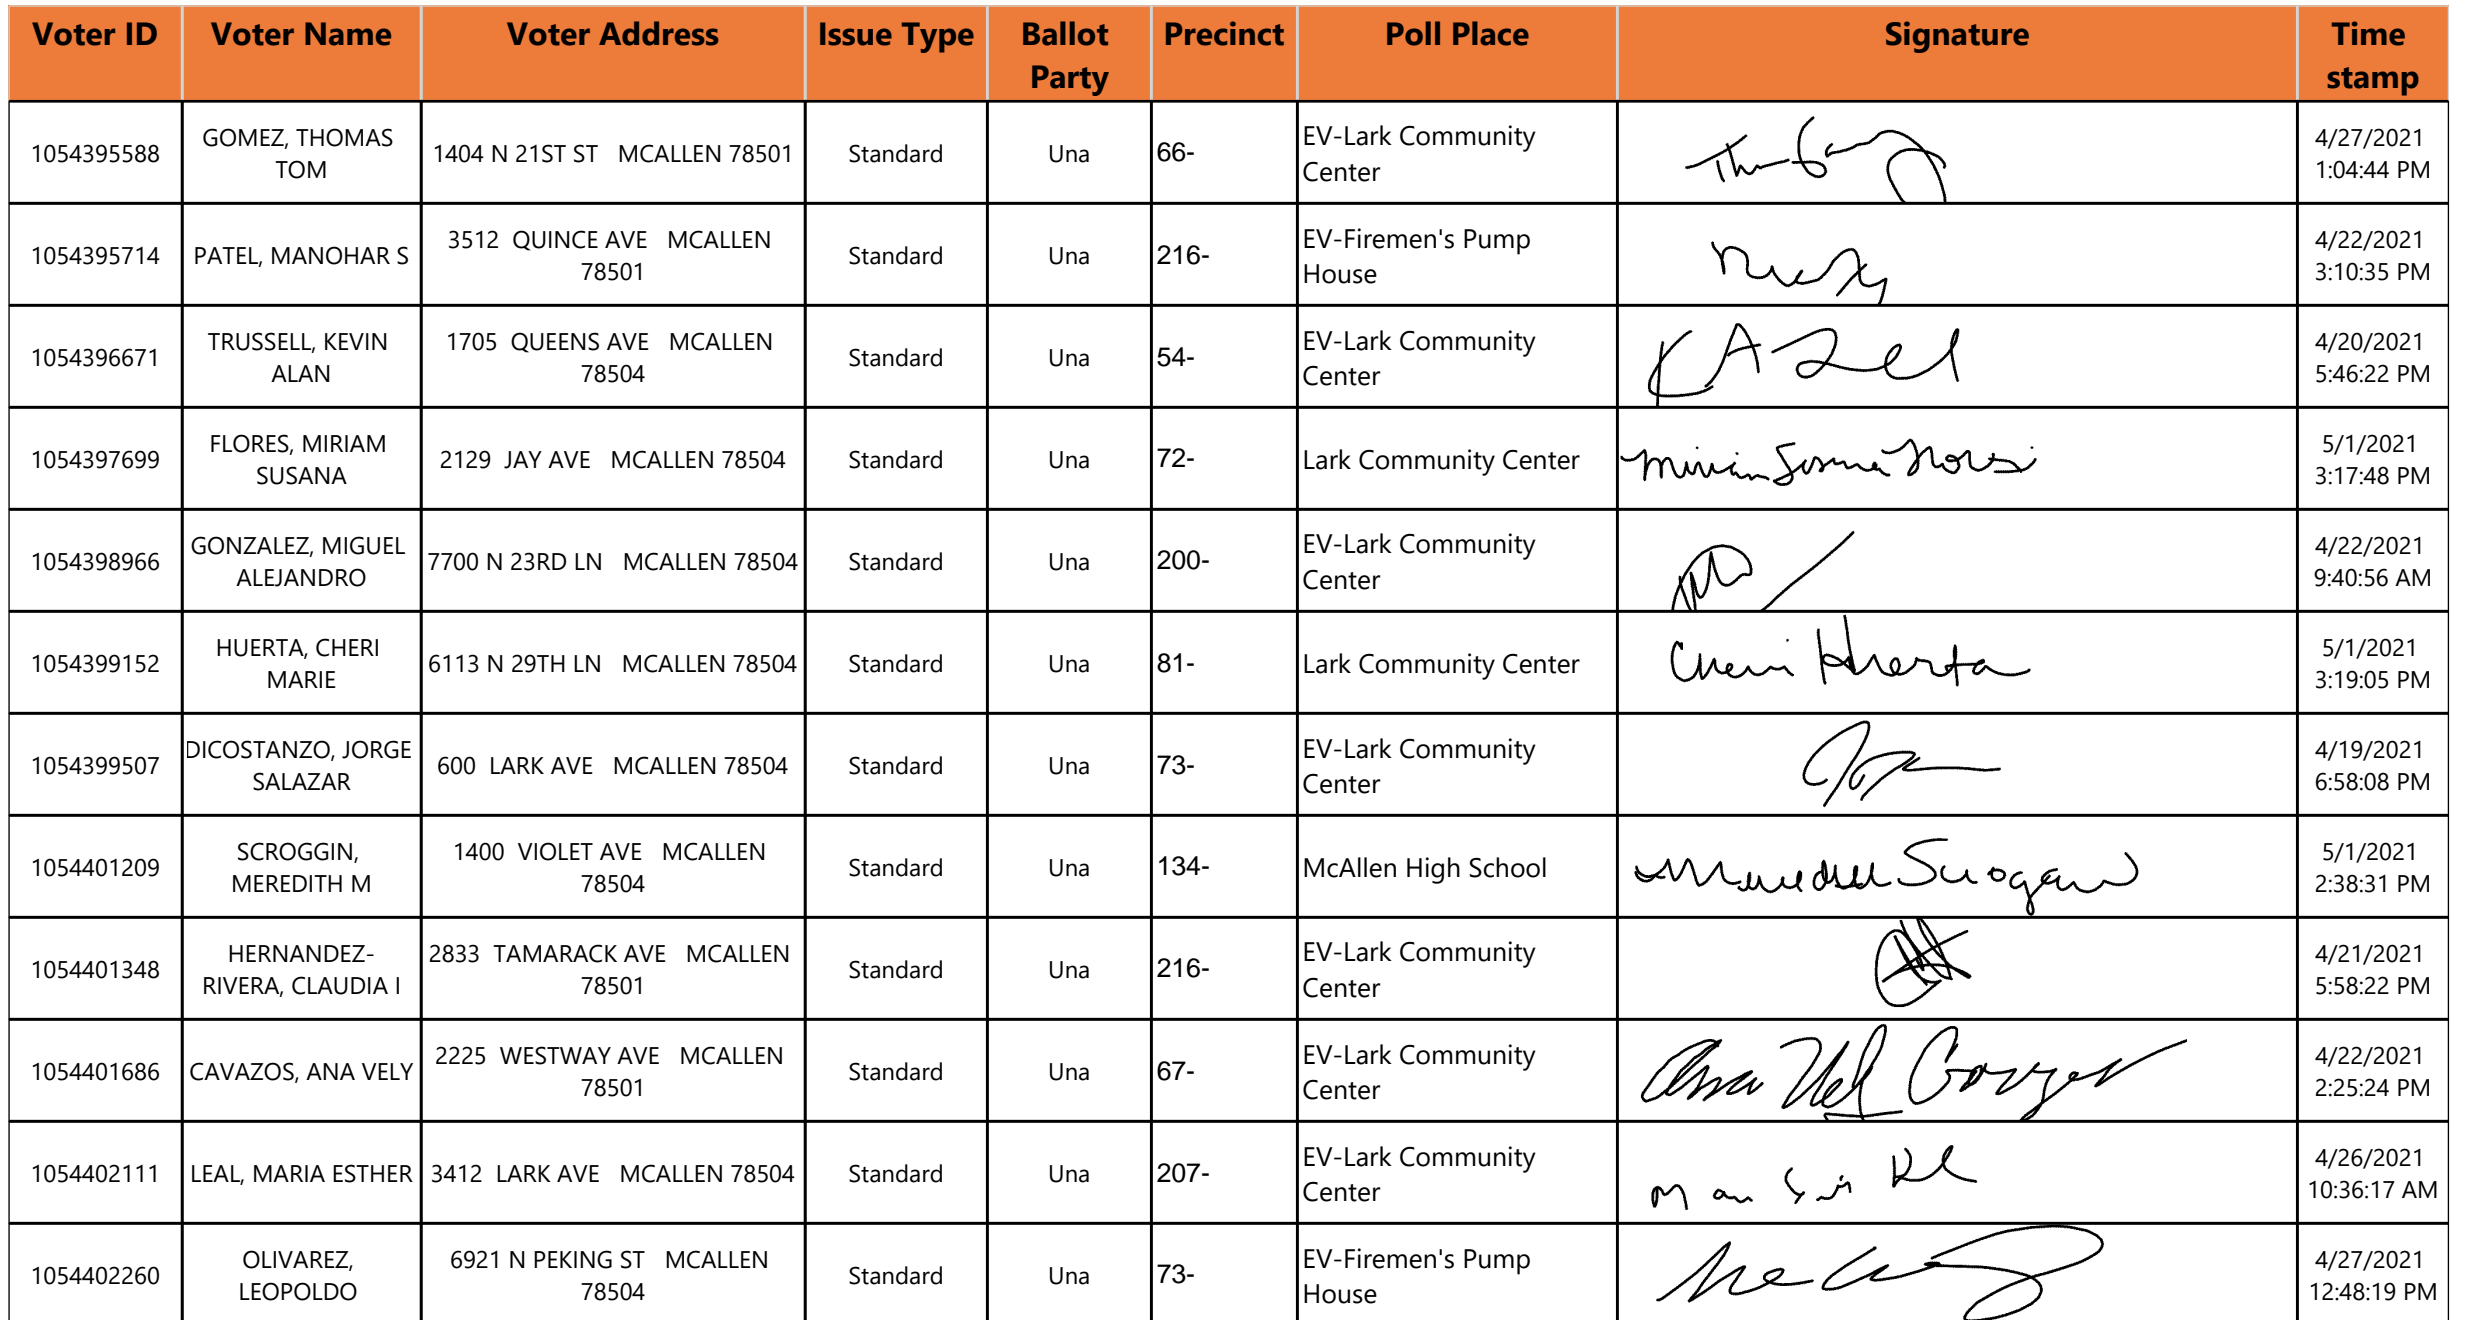 Voter ID Voter Name Voter Address Issue Type Ballot Party Precinct Poll Place Signature Time stamp
1054395588 GOMEZ, THOMAS TOM 1404 N 21ST ST MCALLEN 78501 Standard Una 66- EV-Lark Community Center 4/27/2021 1:04:44 PM
1054395714 PATEL, MANOHAR S 3512 QUINCE AVE MCALLEN 78501 Standard Una 216- EV-Firemen's Pump House 4/22/2021 3:10:35 PM
1054396671 TRUSSELL, KEVIN ALAN 1705 QUEENS AVE MCALLEN 78504 Standard Una 54- EV-Lark Community Center 4/20/2021 5:46:22 PM
1054397699 FLORES, MIRIAM SUSANA 2129 JAY AVE MCALLEN 78504 Standard Una 72- Lark Community Center 5/1/2021 3:17:48 PM
1054398966 GONZALEZ, MIGUEL ALEJANDRO 7700 N 23RD LN MCALLEN 78504 Standard Una 200- EV-Lark Community Center 4/22/2021 9:40:56 AM
1054399152 HUERTA, CHERI MARIE 6113 N 29TH LN MCALLEN 78504 Standard Una 81- Lark Community Center Cheri Huerta 5/1/2021 3:19:05 PM
1054399507 DICOSTANZO, JORGE SALAZAR 600 LARK AVE MCALLEN 78504 Standard Una 73- EV-Lark Community Center 4/19/2021 6:58:08 PM
1054401209 SCROGGIN, MEREDITH M 1400 VIOLET AVE MCALLEN 78504 Standard Una 134- McAllen High School 5/1/2021 2:38:31 PM
1054401348 HERNANDEZ-RIVERA, CLAUDIA I 2833 TAMARACK AVE MCALLEN 78501 Standard Una 216- EV-Lark Community Center 4/21/2021 5:58:22 PM
1054401686 CAVAZOS, ANA VELY 2225 WESTWAY AVE MCALLEN 78501 Standard Una 67- EV-Lark Community Center Ana 4/22/2021 2:25:24 PM
1054402111 LEAL, MARIA ESTHER 3412 LARK AVE MCALLEN 78504 Standard Una 207- EV-Lark Community Center 4/26/2021 10:36:17 AM
1054402260 OLIVAREZ, LEOPOLDO 6921 N PEKING ST MCALLEN 78504 Standard Una 73- EV-Firemen's Pump House 4/27/2021 12:48:19 PM